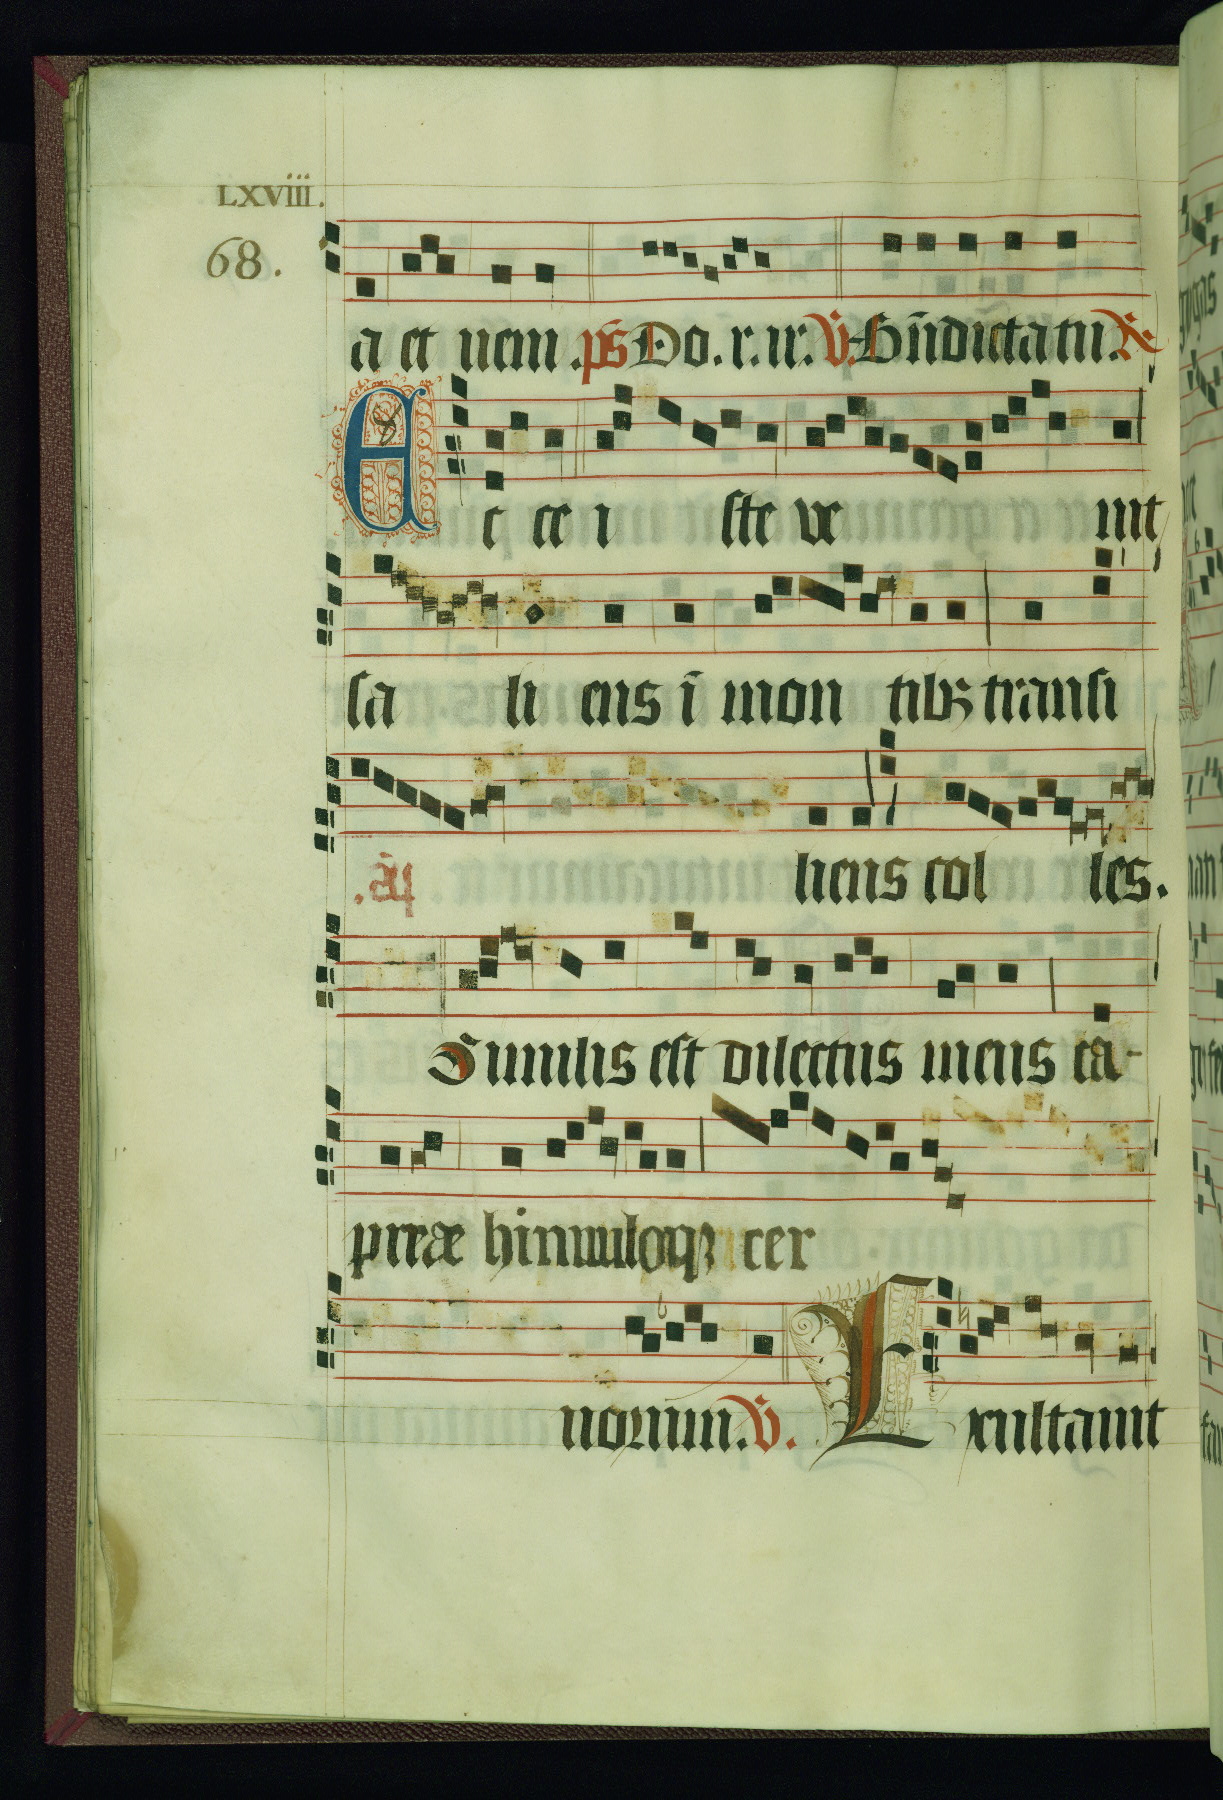 LXVIII.
68.
a et nem. ps Do. r. ir. V. Bn̄dicta tu. R
E c ce i ste ve nit
sa li ens ī mon tibꝫ transi
liens col les.
Similis est dilectus meus ca-
preæ hinnuloqꝫ cer
uorum. V. Exultauit